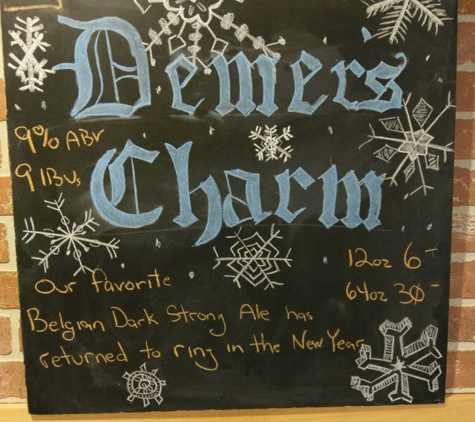 Demers
Charm
9% ABV
9 IBUs
12oz 6-
64oz 30-
Our favorite
Belgian Dark Strong Ale has
returned to ring in the New Year